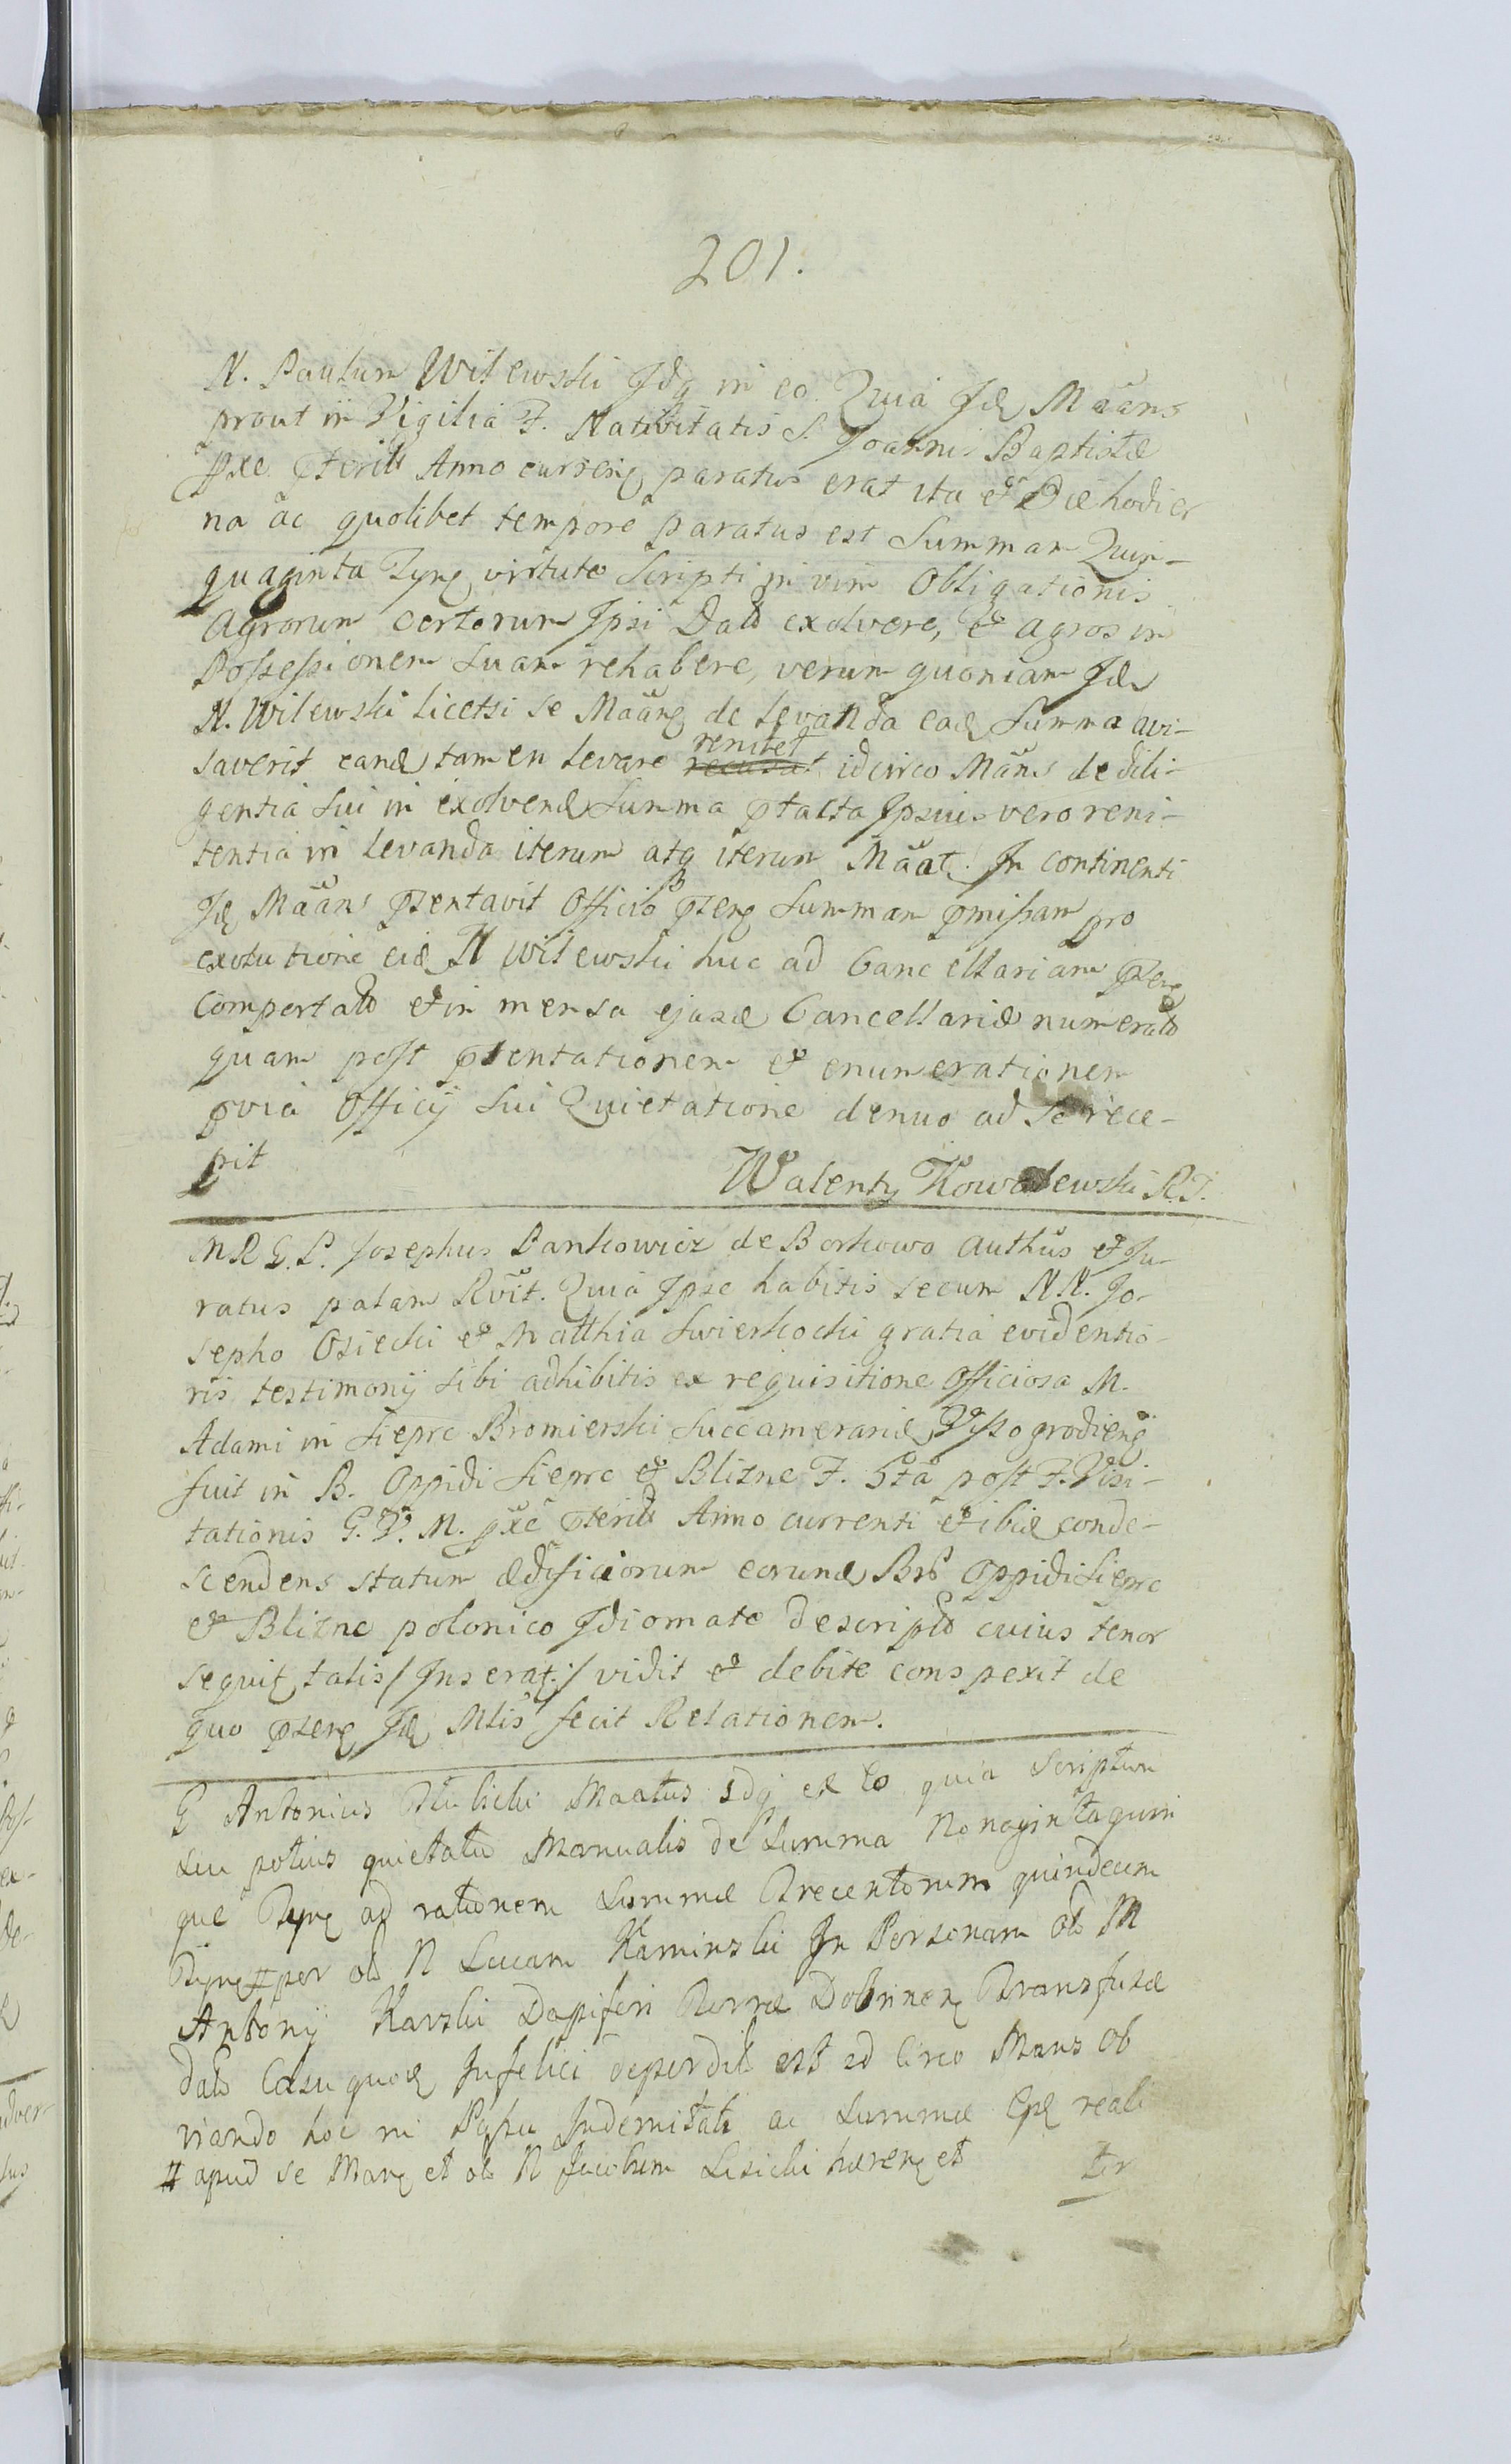 201.
N. Paulum Wilewski Idq in eo Quia Id Mãans
prout in Vigilia F. Nativitatis S. Joannis Baptistæ
pxe pterit Anno curren paratus erat ita et Die hodier
na ac quolibet tempore paratus est Summam Quin-
quaginta Tyn virtute Scripti in vim Obligationis
Agrorum certorum Ipsi Dato exolvere, et agros in
Possessionem suam rehabere, verum quoniam Id
N. Wilewski licetsi se Mãan de levanda ead Summa avi-
saverit eand tamen levare renitet idcirco Mãns de dili-
gentia sui in exolvend Summa ptacta Ipsius vero reni-
tentia in levanda iterum atq iterum Mãat. In continenti
Id Mãans pzentavit Officio pzen Summam pmissam pro
exolutione eid N Wilewski huc ad Cancellariam pzen
Comportato et in mensa ejusd Cancellariæ numerato
quam post pzentationem et enumerationem
pvia Officij sui Quietatione denuo ad se rece-
pit
Walenty Kowalewski R.T.
M R G. P. Josephus Pankowicz de Borkowo Authus et Ju-
ratus palam Rvit. Quia Ipse habitis secum N.N. Jo-
sepho Osiecki et Matthia Swierkocki gratia evidentio-
ris testimonij sibi adhibitis ex requisitione Officiosa M.
Adami in Sieprc Bromierski Succamerarid Vissogrodien
fuit in B. Oppidi Sieprc et Blizne F. 5ta post F. Visi-
tationis G. V. M. pxe pterit Anno currenti et ibid conde-
scendens statum ædificiorum eorund Brõ Oppidi Sieprc
et Blizne polonico Idiomate descripto cuius tenor
sequit talis /Inserat:/ vidit et debite conspexit de
quo pzen Id Mlis fecit Relationem.
G Antonius Mãatus Idq ex eo quia Scriptum
seu potius quietatio Manualis de Summa Nonagintaquin
que Tyn ad rationem Summæ Trecentorum quindecim
Tyn # per ol N Lucam Kaminski In Personam ol M
Antonij Karski Dapiferi Terræ Dobrinen Transfusæ
dato Casu quod Infelici deperdit est id circo Mans ob
viando hoc in Passu Indemnitati ac Summæ reali
# apud se Man et ol N Jacobum Lisicki hæren et
ter